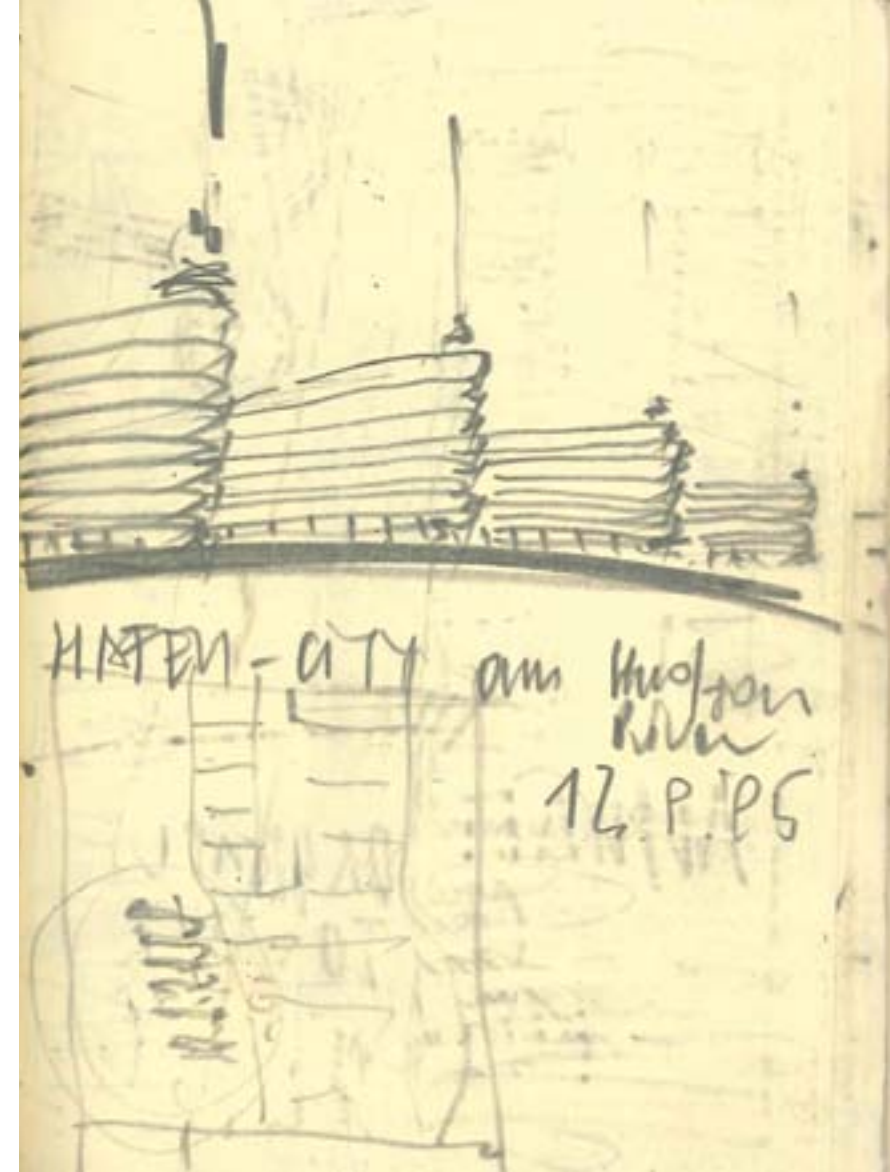 HAFEN-CITY am Hudson
River
12.8.85